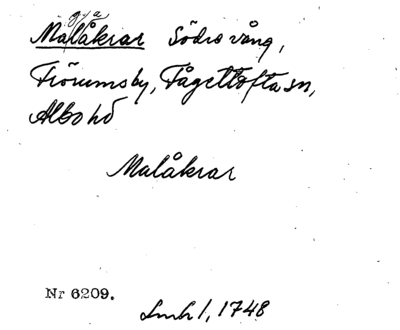 gra
Malåkrar Södrevång,
Frörumsby, Fågeltofta sn,
Albo hd
Malåkrar
Nr 6209.
Lmh 1, 1748